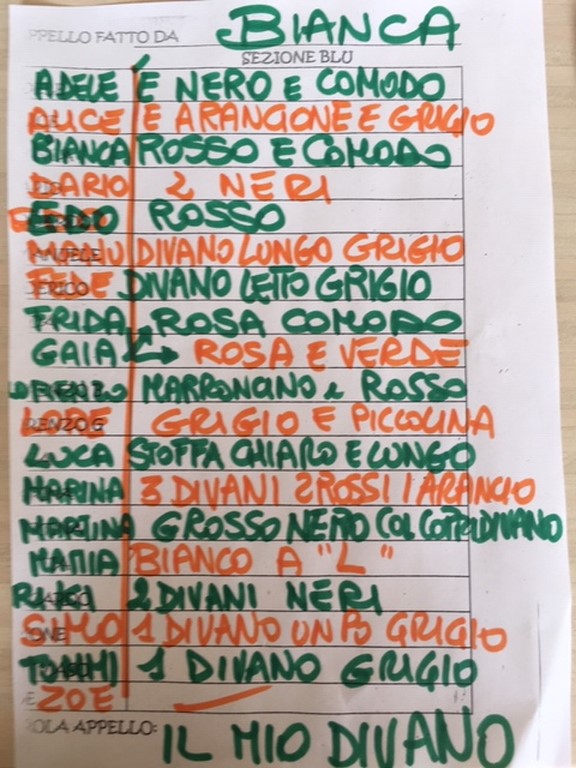 APPELLO FATTO DA BIANCA
SEZIONE BLU
ADELE È NERO E COMODO
ALICE E ARANCIONE E GRIGIO
BIANCA ROSSO E COMODO
DARIO 2 NERI
EDO ROSSO
MANU DIVANO LUNGO GRIGIO
FEDE DIVANO LETTO GRIGIO
FRIDA ROSA COMODO
GAIA ROSA E VERDE
LORENZO MARRONCINO e ROSSO
LORE GRIGIO E PICCOLINA
LUCA STOFFA CHIARO E LUNGO
MARINA 3 DIVANI 2 ROSSI 1 ARANCIO
MARTINA GROSSO NERO COL COPRIDIVANO
MATTIA BIANCO A "L"
RIKI 2 DIVANI NERI
SIMO 1 DIVANO UN PO GRIGIO
TOMMI 1 DIVANO GRIGIO
ZOE
PAROLA APPELLO: IL MIO DIVANO